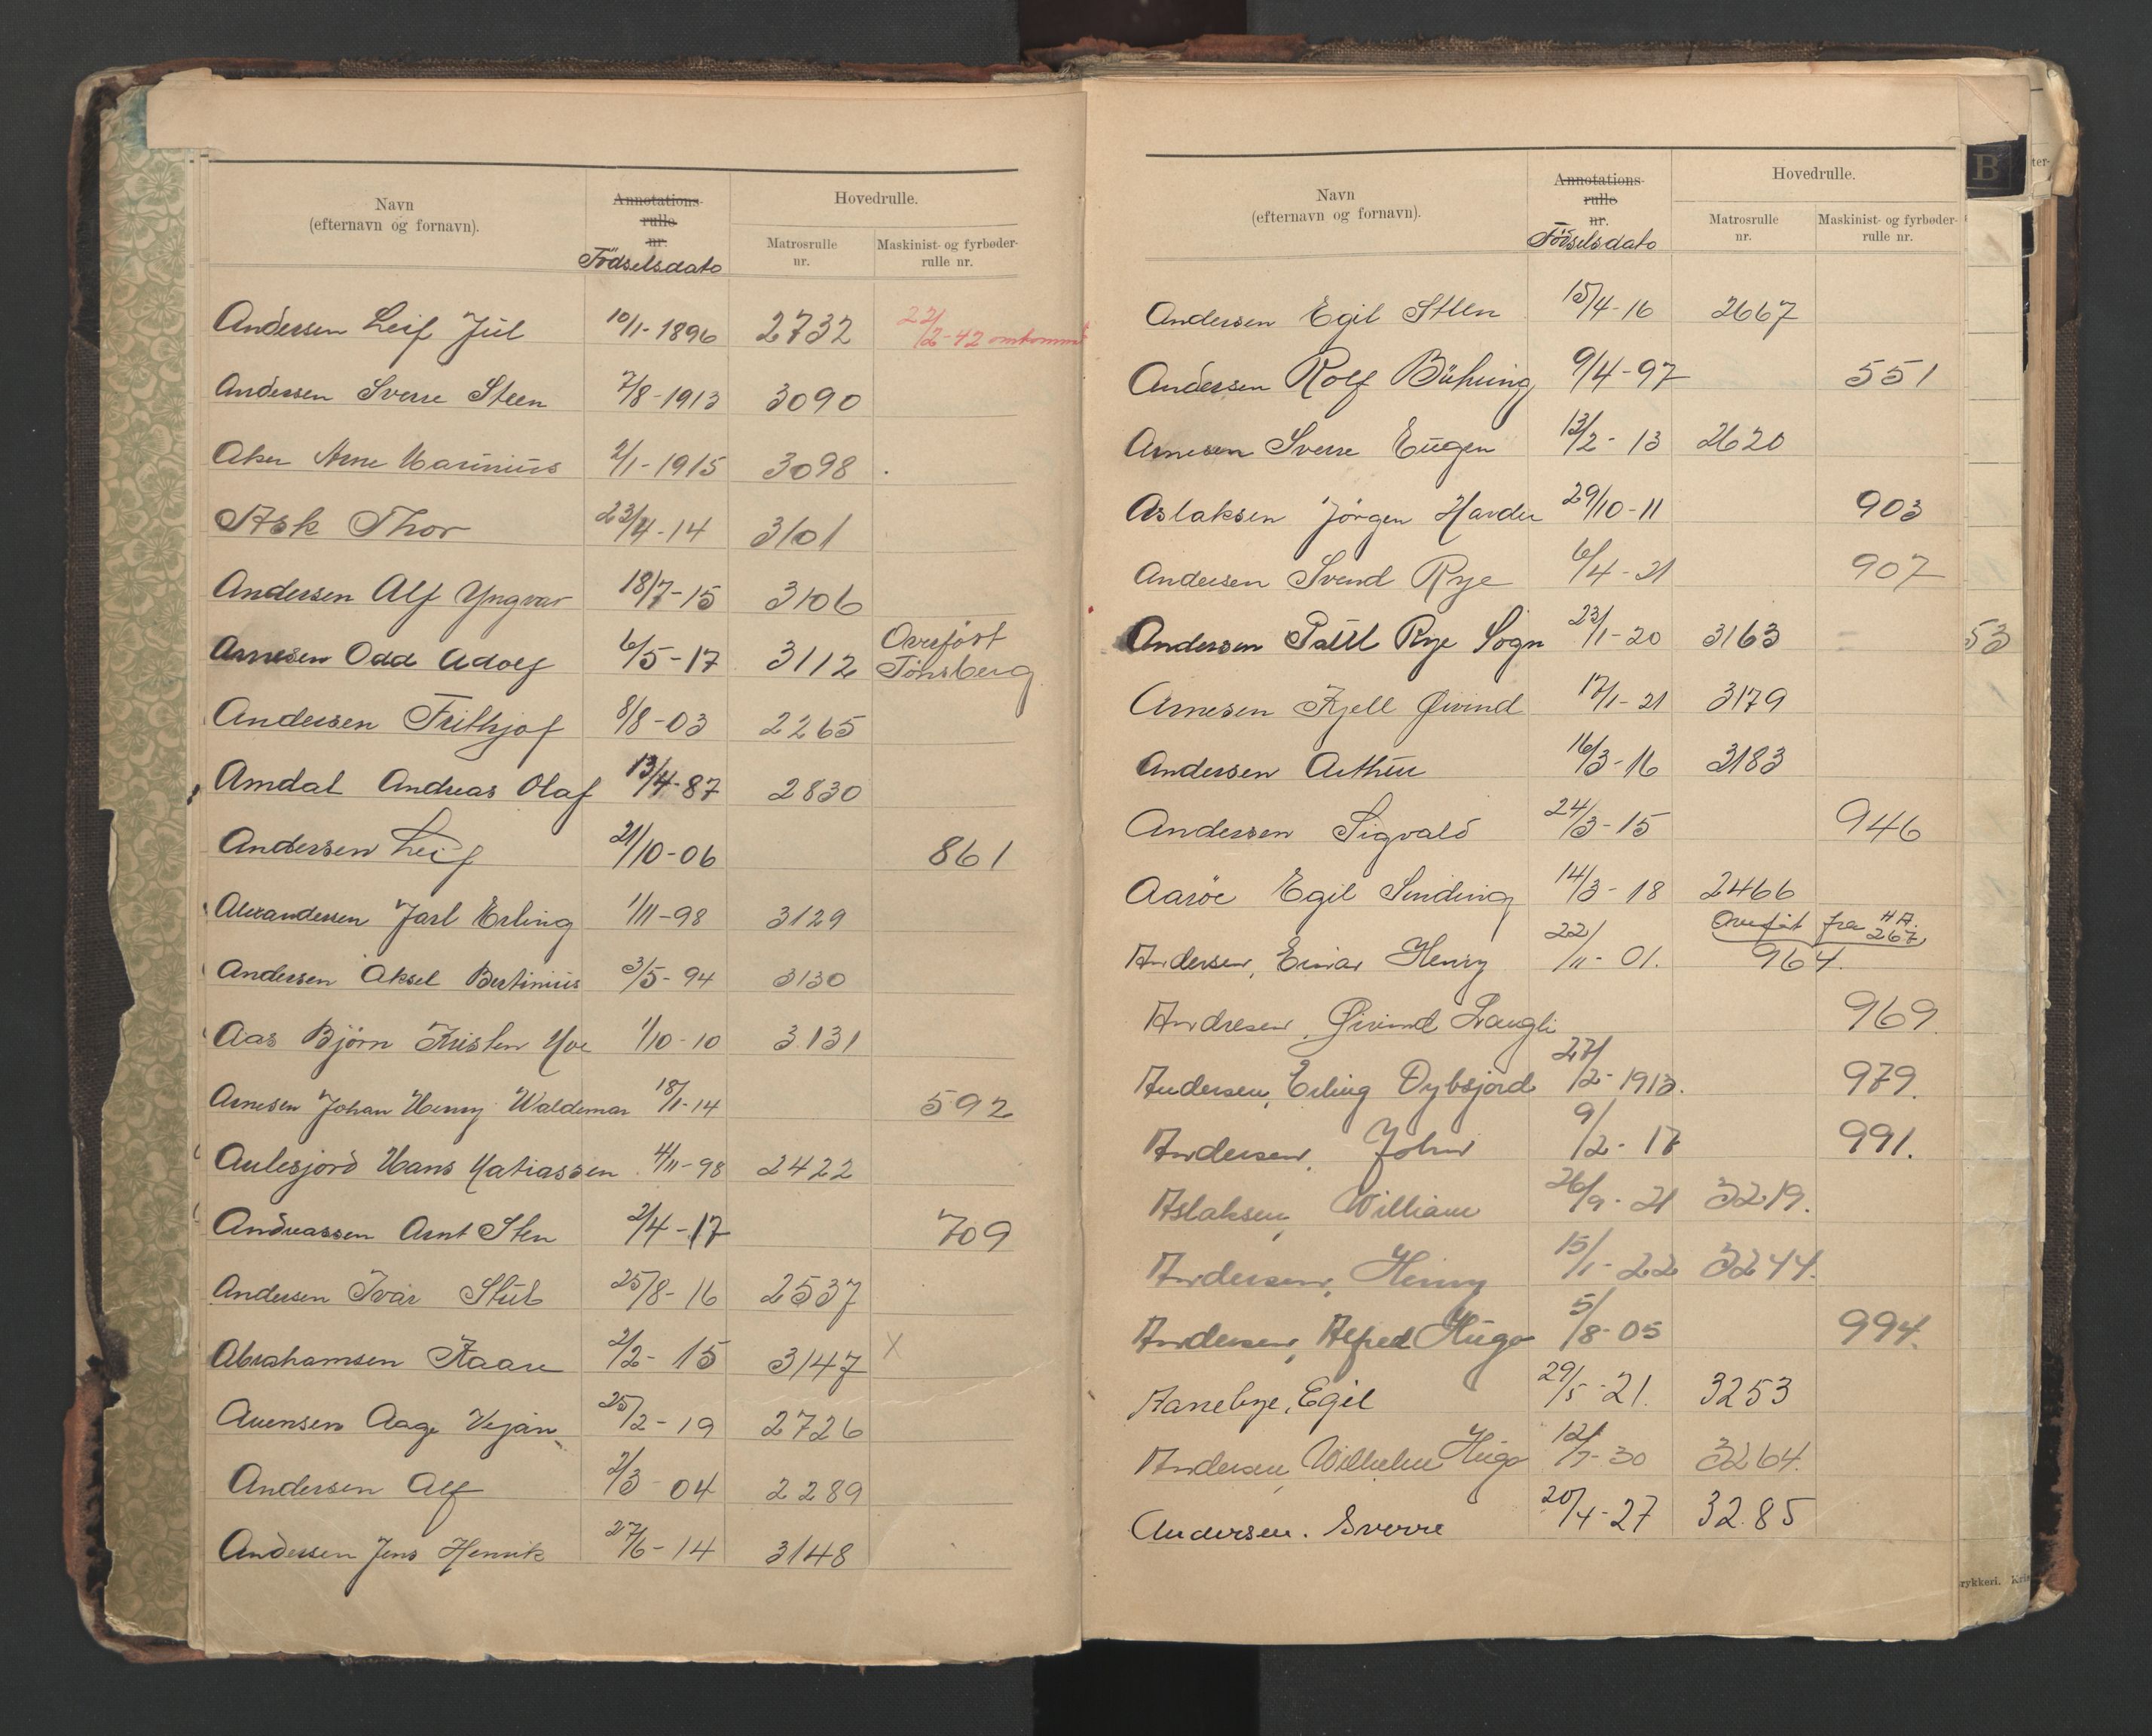 Navn
(efternavn og fornavn).
Annotations-
rulle
nr.
Födselsdato
Hovedrulle.
Matrosrulle
nr.
Maskinist- og fyrbøder-
rulle nr.
Andersen Leif Jul 10/1-1896 2732 22/2-42 omkommet
Andersen Sverre Steen 7/8-1913 3090
Aker Arne Marinius 2/1-1915 3098
Ask Thor 23/4-14 3101
Andersen Alf Yngvar 18/7-15 3106
Arnesen Odd Adolf 6/5-17 3112 Overført Tönsberg
Andersen Frithjof 8/8-03 2265
Amdal Andreas Olaf 13/4-87 2830
Andersen Leif 21/10-06 861
Alexandersen Jarl Erling 1/11-98 3129
Andersen Aksel Bertinius 3/5-94 3130
Aas Björn Kristen 1/10-10 3131
Arnesen Johan Henry Waldemar 18/1-14 592
Aulesjord Hans Matiassen 4/11-98 2422
Andreassen Arnt Sten 2/4-17 709
Andersen Ivar Stub 25/8-16 2537
Abrahamsen Kaare 2/2-15 3147 x
Auensen Aage Vejan 25/2-19 2726
Andersen Alf 2/3-04 2289
Andersen Jens Henrik 27/6-14 3148
Navn
(efternavn og fornavn).
Annotations-
rulle
nr.
Födselsdato
Hovedrulle.
Matrosrulle
nr.
Maskinist- og fyrbøder-
rulle nr.
B
ter-
Andersen Egil Steen 15/4-16 2667
Andersen Rolf Bühring 9/4-97 551
Arnesen Sverre Eugen 13/2-13 2620
Aslaksen Jörgen Harder 29/10-11 903
Andersen Svend Rye 6/4-21 907
Andersen Paul Rye Sogn 23/1-20 3163 53
Arnesen Kjell Øivind 17/1-21 3179
Andersen Arthur 16/3-16 3183
Andersen Sigvald 24/3-15 946
Aaröe Egil Sinding 14/3-18 2466
Overført fra HA. 267
Andersen, Einar Henry 22/11-01. 964.
Andresen, Øivind Langli 969.
Andersen, Erling Dybsjord 27/2-1913. 979.
Andersen, John 9/2-17 991.
Aslaksen, William 26/9-21 3219.
Andersen, Henry 15/1-22 3244.
Andersen, Alfred Hugo 5/8-05 994.
Aannebye, Egil 29/5-21. 3253
Andersen, Wilhelm Hugo 12/7-30 3264.
Andersen. Sverre 20/4-27 3285
rykkeri. Kris